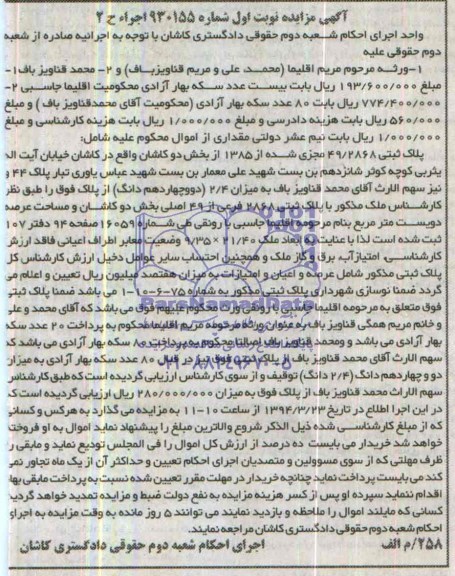 آگهی مزایده نوبت اول شماره ۹۳۰۱۵۵ اجراء ح ۲
واحد اجرای احکام شعبه دوم حقوقی دادگستری کاشان با توجه به اجرائیه صادره از شعبه
دوم حقوقی علیه
۱-ورثه مرحوم مریم اقلیما (محمد، علی و مریم قناویزباف) و ۲- محمد قناویز باف ۱-
مبلغ ۱۹۳/۶۰۰/۰۰۰ ریال بابت بیست عدد سکه بهار آزادی محکومیت اقلیما جاسبی ۲-
۷۷۴/۴۰۰/۰۰۰ ریال بابت ۸۰ عدد سکه بهار آزادی (محکومیت آقای محمدقناویز باف) و مبلغ
۵۶۰/۰۰۰ ریال بابت هزینه دادرسی و مبلغ ۱/۰۰۰/۰۰۰ ریال بابت هزینه کارشناسی و مبلغ
۱/۰۰۰/۰۰۰ ریال بابت نیم عشر دولتی مقداری از اموال محکوم علیه شامل:
پلاک ثبتی ۴۹/۲۸۶۸ مجزی شده از ۱۳۸۵ از بخش دو کاشان واقع در کاشان خیابان آیت اله
یثربی کوچه کوثر شانزدهم بن بست شهید علی معمار بن بست شهید عباس یاوری تبار پلاک ۴۴ و
نیز سهم الارث آقای محمد قناویز باف به میزان ۲/۴ (دووچهاردهم دانگ) از پلاک فوق را طبق نظر
کارشناس ملک مذکور با پلاک ثبتی ۲۸۶۸ فرعی از ۴۹ اصلی بخش دو کاشان و مساحت عرصه
دویست متر مربع بنام مرحومه اقلیما جاسبی با رونقی طی شماره ۱۶۰۵۹ صفحه ۹۴ دفتر ۱۰۷
ثبت شده است لذا با عنایت به ابعاد ملک ۲۱/۴۰ × ۹/۳۵ وضعیت معابر اطراف اعیانی فاقد ارزش
کارشناسی، امتیاز آب، برق و گاز ملک و همچنین احتساب سایر عوامل دخیل ارزش کارشناس کل
پلاک ثبتی مذکور شامل عرصه و اعیان و امتیازات به میزان هفتصد میلیون ریال تعیین و اعلام می
گردد ضمنا نوسازی شهرداری پلاک ثبتی مذکور به شماره ۷۵-۶-۱۰-۱ می باشد ضمنا پلاک ثبتی
فوق متعلق به مرحومه اقلیما جاسبی با رونقی ورث محکوم علیهم فوق می باشد که آقای محمد و علی
و خانم مریم همگی قناویز باف به عنوان ورثه مرحومه مریم اقلیما محکوم به پرداخت ۲۰ عدد سکه
بهار آزادی می باشد و ومحمد قناویز باف اصالتا محکوم به پرداخت ۸۰ سکه بهار آزادی می باشد که
سهم الارث آقای محمد قناویز باف از پلاک ثبتی فوق نیز در قبال ۸۰ عدد سکه بهار آزادی به میزان
دو و چهاردهم دانگ (۲/۴ دانگ) توقیف و از سوی کارشناس ارزیابی گردیده است که طبق کارشناس
سهم الارث محمد قناویز باف از پلاک فوق به میزان ۲۸۰/۰۰۰/۰۰۰ ریال ارزیابی گردیده است که
در این اجرا اطلاع در تاریخ ۱۳۹۴/۳/۲۳ از ساعت ۱۰-۱۱ به مزایده می گذارد به هرکس و کسانی
که از مبلغ کارشناسی شده ذیل الذکر شروع والاترین مبلغ را پیشنهاد نماید اموال به او فروخته
خواهد شد خریدار می بایست ده درصد از ارزش کل اموال را فی المجلس تودیع نماید و مابقی را
ظرف مهلتی که از سوی مسوولین و متصدیان اجرای احکام تعیین و حداکثر آن از یک ماه تجاوز نمی
کند می بایست پرداخت نماید چنانچه خریدار در مهلت مقرر تعیین شده نسبت به پرداخت مابقی بها
اقدام ننماید سپرده او پس از کسر هزینه مزایده به نفع دولت ضبط و مزایده تمدید خواهد گردید
کسانی که مایلند اموال را ملاحظه و بازدید نمایند می توانند ۵ روز مانده به وقت مزایده به اجرای
احکام شعبه دوم حقوقی دادگستری کاشان مراجعه نمایند.
۲۵۸/م الف اجرای احکام شعبه دوم حقوقی دادگستری کاشان
ParsNamadData